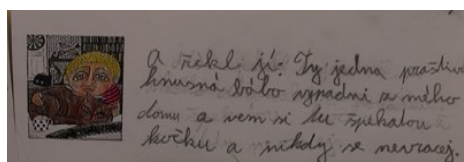 A řekl jí: Ty jedna prašivá
hnusná bábo vypadni z mého
domu a vem si tu špekatou
kočku a nikdy se nevracej.